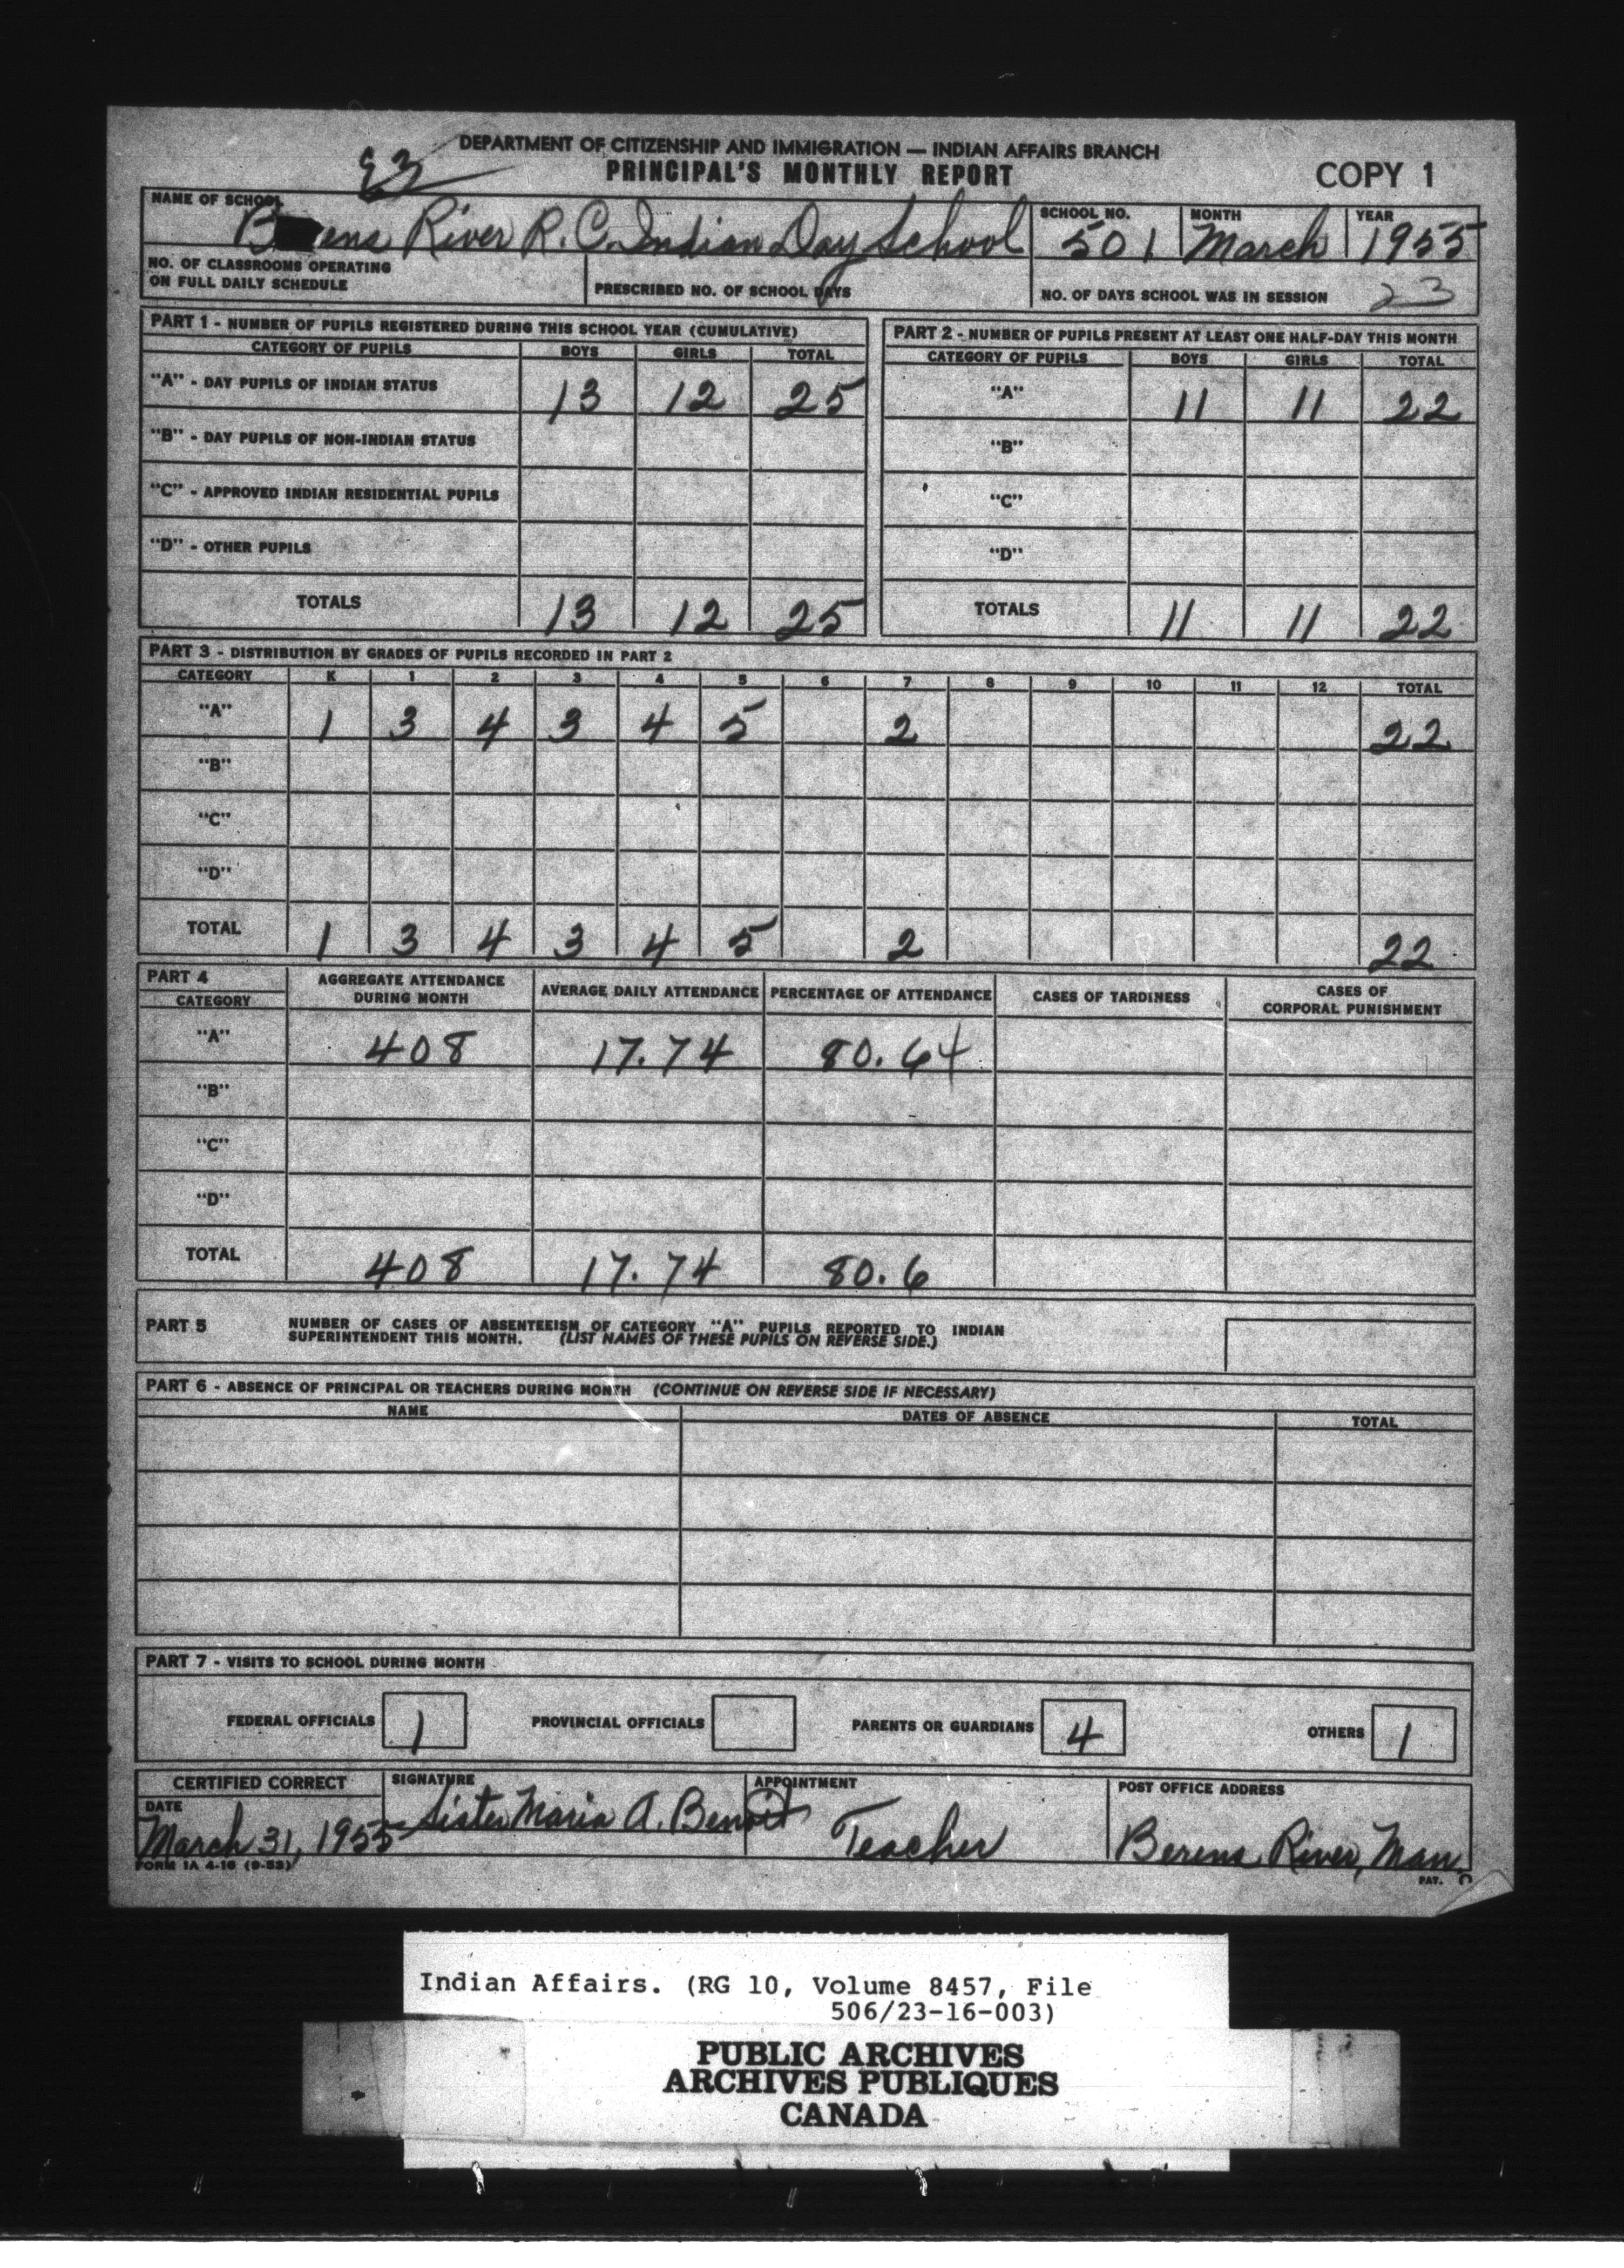 DEPARTMENT OF CITIZENSHIP AND IMMIGRATION — INDIAN AFFAIRS BRANCH
PRINCIPAL'S MONTHLY REPORT
COPY 1
NAME OF SCHOOL
SCHOOL NO.
MONTH
YEAR
River R. C. Indian Day School
501
March
1955
NO. OF CLASSROOMS OPERATING
ON FULL DAILY SCHEDULE
PRESCRIBED NO. OF SCHOOL DAYS
NO. OF DAYS SCHOOL WAS IN SESSION 23
PART 1 - NUMBER OF PUPILS REGISTERED DURING THIS SCHOOL YEAR (CUMULATIVE)
CATEGORY OF PUPILS BOYS GIRLS TOTAL
"A" - DAY PUPILS OF INDIAN STATUS 13 12 25
"B" - DAY PUPILS OF NON-INDIAN STATUS
"C" - APPROVED INDIAN RESIDENTIAL PUPILS
"D" - OTHER PUPILS
TOTALS 13 12 25
PART 2 - NUMBER OF PUPILS PRESENT AT LEAST ONE HALF-DAY THIS MONTH
CATEGORY OF PUPILS BOYS GIRLS TOTAL
"A" 11 11 22
"B"
"C"
"D"
TOTALS 11 11 22
PART 3 - DISTRIBUTION BY GRADES OF PUPILS RECORDED IN PART 2
CATEGORY K 1 2 3 4 5 6 7 8 9 10 11 12 TOTAL
"A" 1 3 4 3 4 5 2 22
"B"
"C"
"D"
TOTAL 1 3 4 3 4 5 2 22
PART 4
CATEGORY
AGGREGATE ATTENDANCE
DURING MONTH
AVERAGE DAILY ATTENDANCE
PERCENTAGE OF ATTENDANCE
CASES OF TARDINESS
CASES OF
CORPORAL PUNISHMENT
"A" 408 17.74 80.64
"B"
"C"
"D"
TOTAL 408 17.74 80.6
PART 5
NUMBER OF CASES OF ABSENTEEISM OF CATEGORY "A" PUPILS REPORTED TO INDIAN
SUPERINTENDENT THIS MONTH. (LIST NAMES OF THESE PUPILS ON REVERSE SIDE.)
PART 6 - ABSENCE OF PRINCIPAL OR TEACHERS DURING MONTH (CONTINUE ON REVERSE SIDE IF NECESSARY)
NAME DATES OF ABSENCE TOTAL
PART 7 - VISITS TO SCHOOL DURING MONTH
FEDERAL OFFICIALS 1 PROVINCIAL OFFICIALS PARENTS OR GUARDIANS 4 OTHERS 1
CERTIFIED CORRECT
DATE
March 31, 1955
SIGNATURE
Sister Maria A. Benoit
APPOINTMENT
Teacher
POST OFFICE ADDRESS
Berens River, Man.
FORM IA 4-16 (9-53)
PAT.
Indian Affairs. (RG 10, Volume 8457, File
506/23-16-003)
PUBLIC ARCHIVES
ARCHIVES PUBLIQUES
CANADA